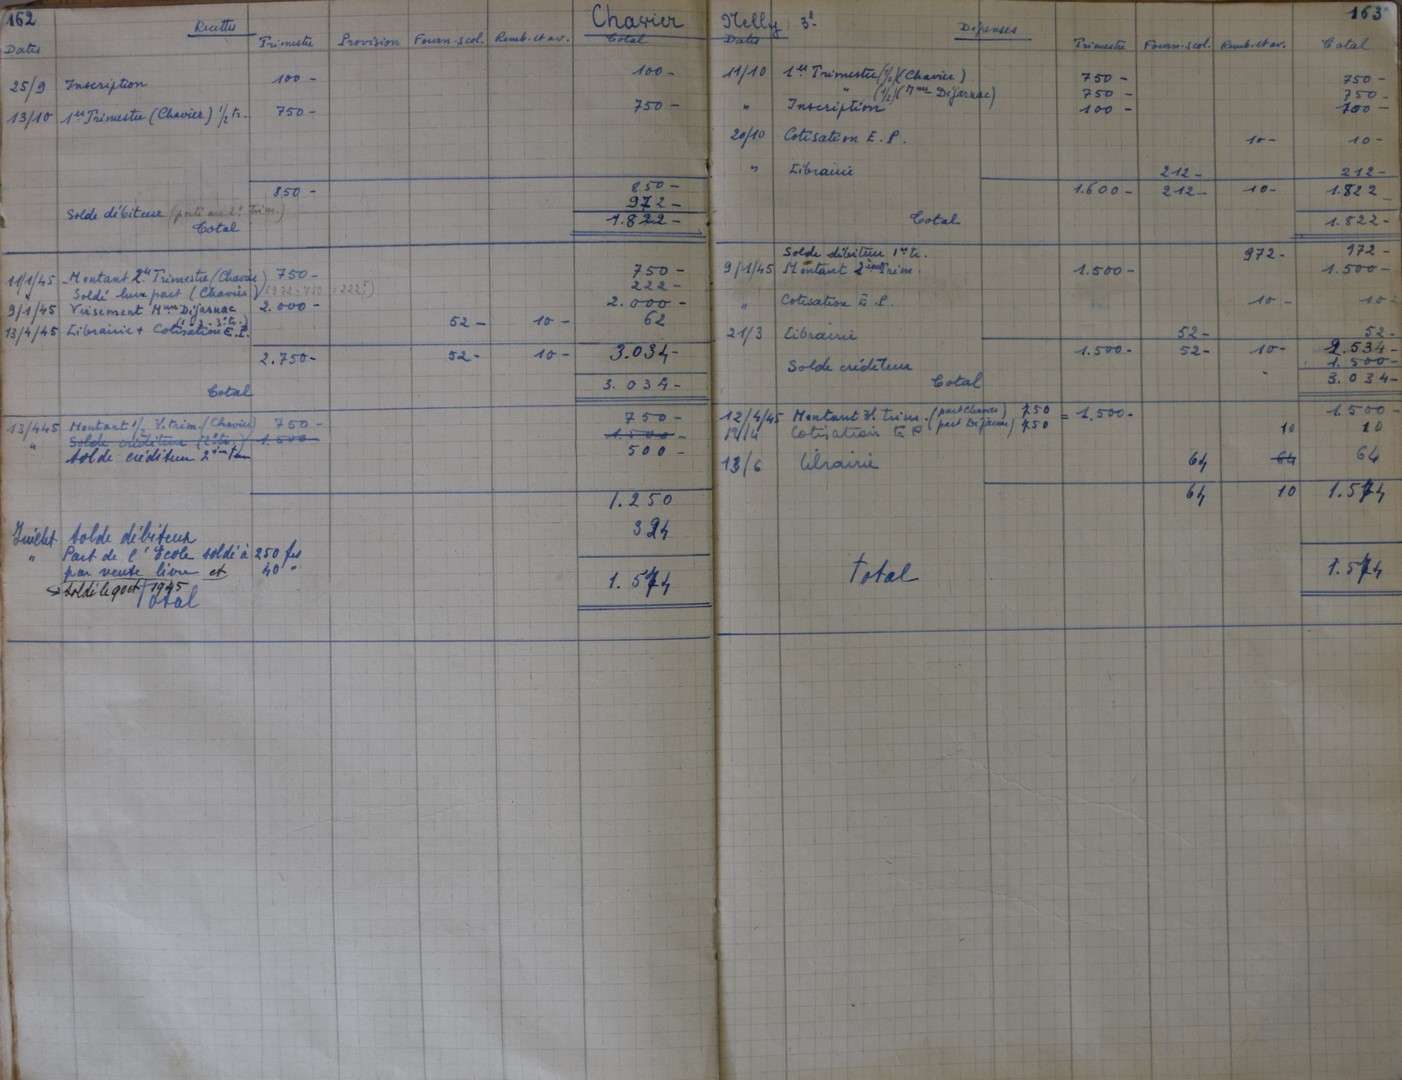 162 Recettes Chavier
Dates Trimestre Provision Fourn. scol. Remb. et av. Total
25/9 Inscription 100 - 100 -
13/10 1er Trimestre (Chavier) 1/2 tr. 750 - 750 -
850 - 850 -
Solde débiteur (porté au 2e Trim.) 972 -
Total 1.822 -
11/1/45 Montant 2e Trimestre (Chavier) 750 - 750 -
Soldé leur part (Chavier) (972 - 750 = 222f) 222 -
9/1/45 Versement Mme Dejarnac 2.000 - 2.000 -
13/4/45 Librairie + Cotisation E.P. 52 - 10 - 62
2.750 - 52 - 10 - 3.034 -
Total 3.034 -
13/4/45 Montant 1/2 3e. trim. (Chavier) 750 - 750 -
" Solde créditeur 1.500 - 1.500 -
Solde créditeur 2ème trim 500 -
1.250
Juillet Solde débiteur 324
" Part de l'Ecole soldé à 250 frs
par vente livre et 40 "
1.574
→ soldé le 9 oct 1945
Total
Nelly 3e 163
Dates Dépenses Trimestre Fourn. scol. Remb. et av. Total
11/10 1er Trimestre (1/2) (Chavier) 750 - 750 -
" (1/2) (Mme Dejarnac) 750 - 750 -
" Inscription 100 - 100 -
20/10 Cotisation E.P. 10 - 10 -
" Librairie 212 - 212 -
1.600 - 212 - 10 - 1.822
Total 1.822 -
Solde débiteur 1er tr. 972 - 972 -
9/1/45 Montant 2ème Trim. 1.500 - 1.500 -
" Cotisation E.P. 10 - 10 -
21/3 Librairie 52 - 52 -
1.500 - 52 - 10 - 2.534 -
Solde créditeur 1.500 -
Total 3.034 -
12/4/45 Montant 3e. trim. (part Chavier) 750 = 1.500 - 1.500 -
(part Dejarnac) 750
Cotisation E.P. 10 10
13/6 Librairie 64 64 64
64 10 1.574
Total 1.574